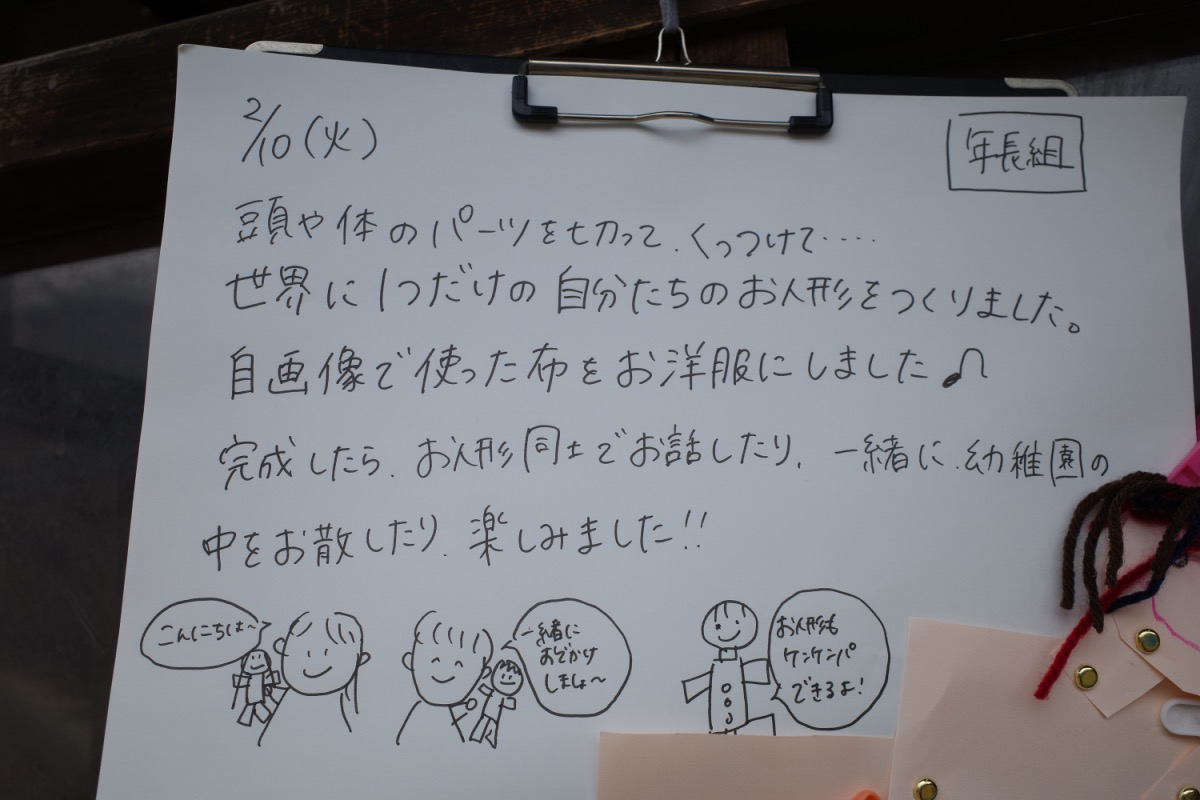 2/10(火)
年長組
頭や体のパーツを切って、くっつけて‥‥
世界に1つだけの自分たちのお人形をつくりました。
自画像で使った布をお洋服にしました♪
完成したら、お人形同士でお話したり、一緒に、幼稚園の
中をお散したり、楽しみました!!
こんにちは~
一緒に
おでかけ
しましょ~
お人形も
ケンケンパ
できるよ!